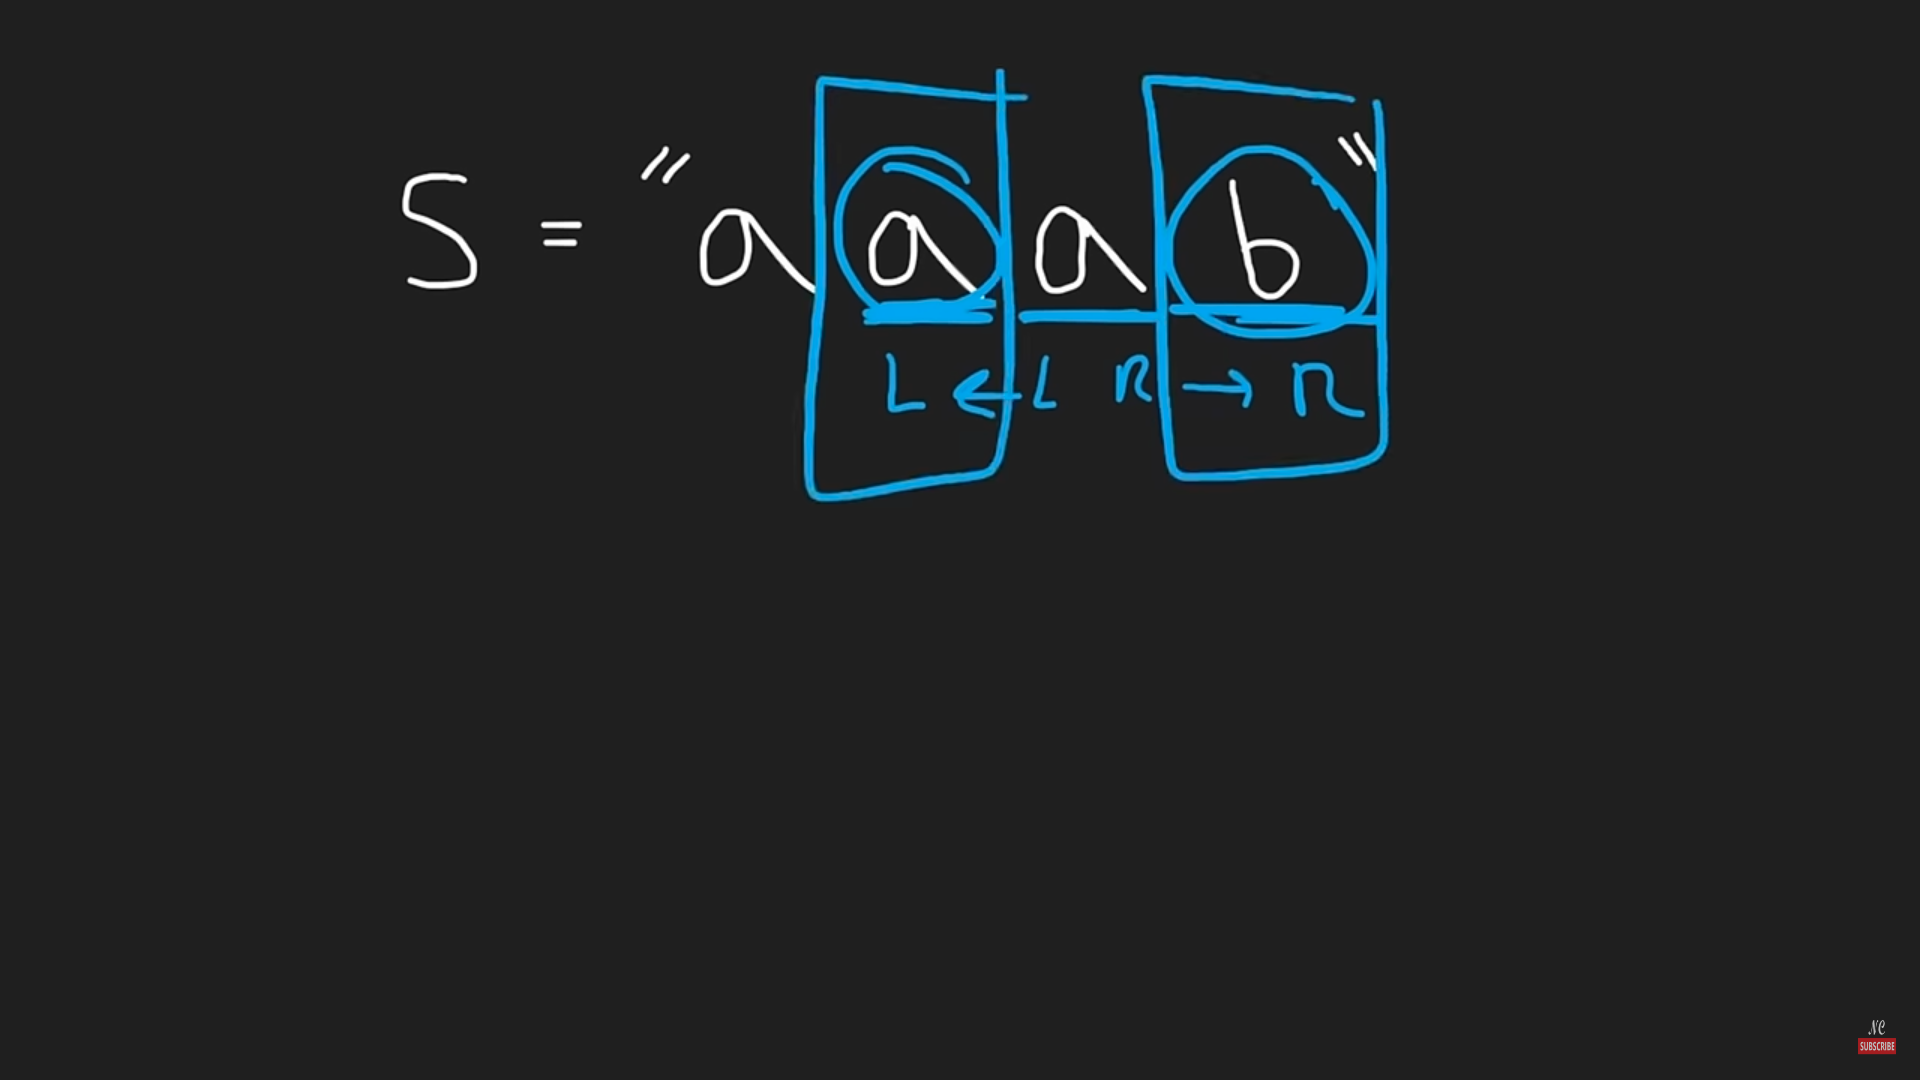 S = "aaab"
L ← L R → R
NC
SUBSCRIBE